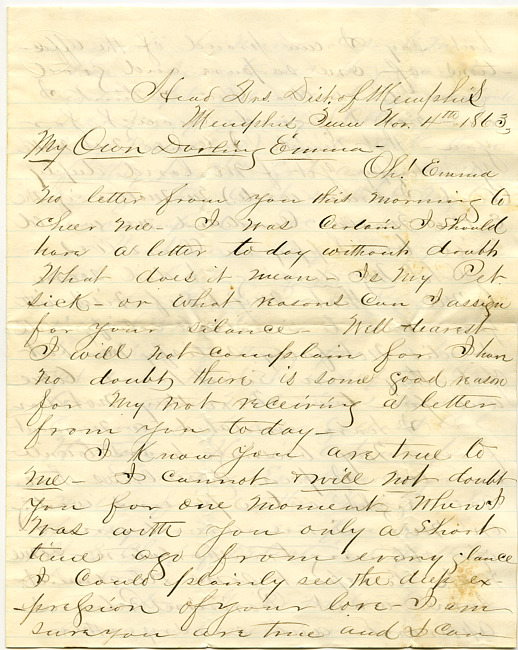 Head Qrs. Dist. of Memphis
Memphis, Tenn Nov. 4th 1863,
My Own Darling Emma -
Oh! Emma
No letter from you this morning to
cheer me - I was certain I should
have a letter today without doubt
What does it mean - Is my Pet
sick - or what reasons can I assign
for your silance - Well dearest
I will not complain for I have
no doubt, there is some good reason
for my not receiving a letter
from you to day -
I know you are true to
me - I cannot & will not doubt
you for one moment. When I
was with you only a short
time ago from every glance
I could plainly see the deep ex-
pression of your love - I am
sure you are true and I can